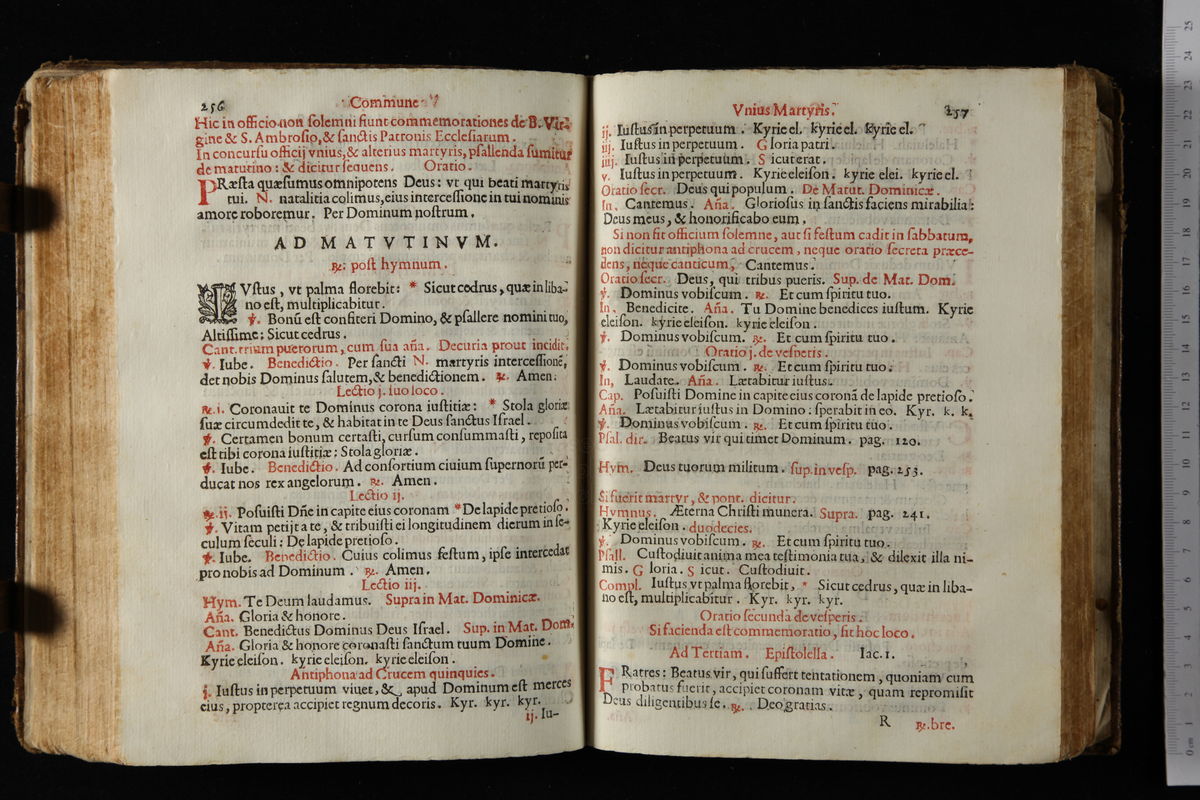 256 Commune
Hic in officio non solemni fiunt commemorationes de B. Vir-
gine & S. Ambrosio, & sanctis Patronis Ecclesiarum.
In concursu officij vnius, & alterius martyris, psallenda sumitur
de matutino: & dicitur sequens. Oratio.
PRæsta quæsumus omnipotens Deus: vt qui beati martyris
tui. N. natalitia colimus, eius intercessione in tui nominis
amore roboremur. Per Dominum nostrum.
AD MATVTINVM.
℞: post hymnum.
IVstus, vt palma florebit: * Sicut cedrus, quæ in liba-
no est, multiplicabitur.
℣. Bonũ est confiteri Domino, & psallere nomini tuo,
Altissime: Sicut cedrus.
Cant. trium puerorum, cum sua aña. Decuria prout incidit.
℣. Iube. Benedictio. Per sancti N. martyris intercessionẽ,
det nobis Dominus salutem, & benedictionem. ℞. Amen.
Lectio j. suo loco.
℞. i. Coronauit te Dominus corona iustitiæ: * Stola gloriæ
suæ circumdedit te, & habitat in te Deus sanctus Israel.
℣. Certamen bonum certasti, cursum consummasti, reposita
est tibi corona iustitiæ: Stola gloriæ.
℣. Iube. Benedictio. Ad consortium ciuium supernorũ per-
ducat nos rex angelorum. ℞. Amen.
Lectio ij.
℞. ij. Posuisti Dñe in capite eius coronam * De lapide pretioso.
℣. Vitam petijt a te, & tribuisti ei longitudinem dierum in se-
culum seculi: De lapide pretioso.
℣. Iube. Benedictio. Cuius colimus festum, ipse intercedat
pro nobis ad Dominum. ℞. Amen.
Lectio iij.
Hym. Te Deum laudamus. Supra in Mat. Dominicæ.
Aña. Gloria & honore.
Cant. Benedictus Dominus Deus Israel. Sup. in Mat. Dom.
Aña. Gloria & honore coronasti sanctum tuum Domine.
Kyrie eleison. kyrie eleison. kyrie eleison.
Antiphona ad Crucem quinquies.
j. Iustus in perpetuum viuet, & apud Dominum est merces
eius, propterea accipiet regnum decoris. Kyr. kyr. kyr.
ij. Iu-
Vnius Martyris. 257
ij. Iustus in perpetuum. Kyrie el. kyrie el. kyrie el.
iij. Iustus in perpetuum. Gloria patri.
iiij. Iustus in perpetuum. Sicut erat.
v. Iustus in perpetuum. Kyrie eleison. kyrie elei. kyrie el.
Oratio secr. Deus qui populum. De Matut. Dominicæ.
In. Cantemus. Aña. Gloriosus in sanctis faciens mirabilia:
Deus meus, & honorificabo eum.
Si non fit officium solemne, aut si festum cadit in sabbatum,
non dicitur antiphona ad crucem, neque oratio secreta præce-
dens, neque canticum, Cantemus.
Oratio secr. Deus, qui tribus pueris. Sup. de Mat. Dom.
℣. Dominus vobiscum. ℞. Et cum spiritu tuo.
In. Benedicite. Aña. Tu Domine benedices iustum. Kyrie
eleison. kyrie eleison. kyrie eleison.
℣. Dominus vobiscum. ℞. Et cum spiritu tuo.
Oratio j. de vesperis.
℣. Dominus vobiscum. ℞. Et cum spiritu tuo.
In, Laudate. Aña. Lætabitur iustus.
Cap. Posuisti Domine in capite eius coronã de lapide pretioso.
Aña. Lætabitur iustus in Domino: sperabit in eo. Kyr. k. k.
℣. Dominus vobiscum. ℞. Et cum spiritu tuo.
Psal. dir. Beatus vir qui timet Dominum. pag. 120.
Hym. Deus tuorum militum. sup. in vesp. pag. 253.
Si fuerit martyr, & pont. dicitur.
Hymnus. Æterna Christi munera. Supra. pag. 241.
Kyrie eleison. duodecies.
℣. Dominus vobiscum. ℞. Et cum spiritu tuo.
Psall. Custodiuit anima mea testimonia tua, & dilexit illa ni-
mis. Gloria. Sicut. Custodiuit.
Compl. Iustus vt palma florebit, * Sicut cedrus, quæ in liba-
no est, multiplicabitur. Kyr. kyr. kyr.
Oratio secunda de vesperis.
Si facienda est commemoratio, fit hoc loco.
Ad Tertiam. Epistolella. Iac. 1.
FRatres: Beatus vir, qui suffert tentationem, quoniam cum
probatus fuerit, accipiet coronam vitæ, quam repromisit
Deus diligentibus se. ℞. Deo gratias.
R ℞. bre.